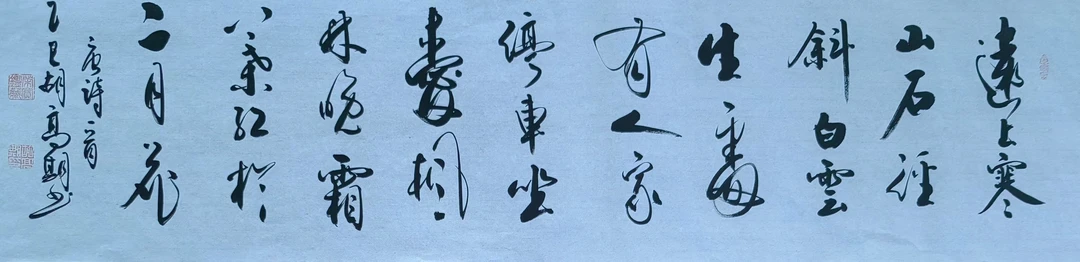 遠上寒
山石徑
斜白雲
生處
有人家
停車坐
愛楓
林晚霜
葉紅於
二月花
唐詩一首
乙巳胡高期书